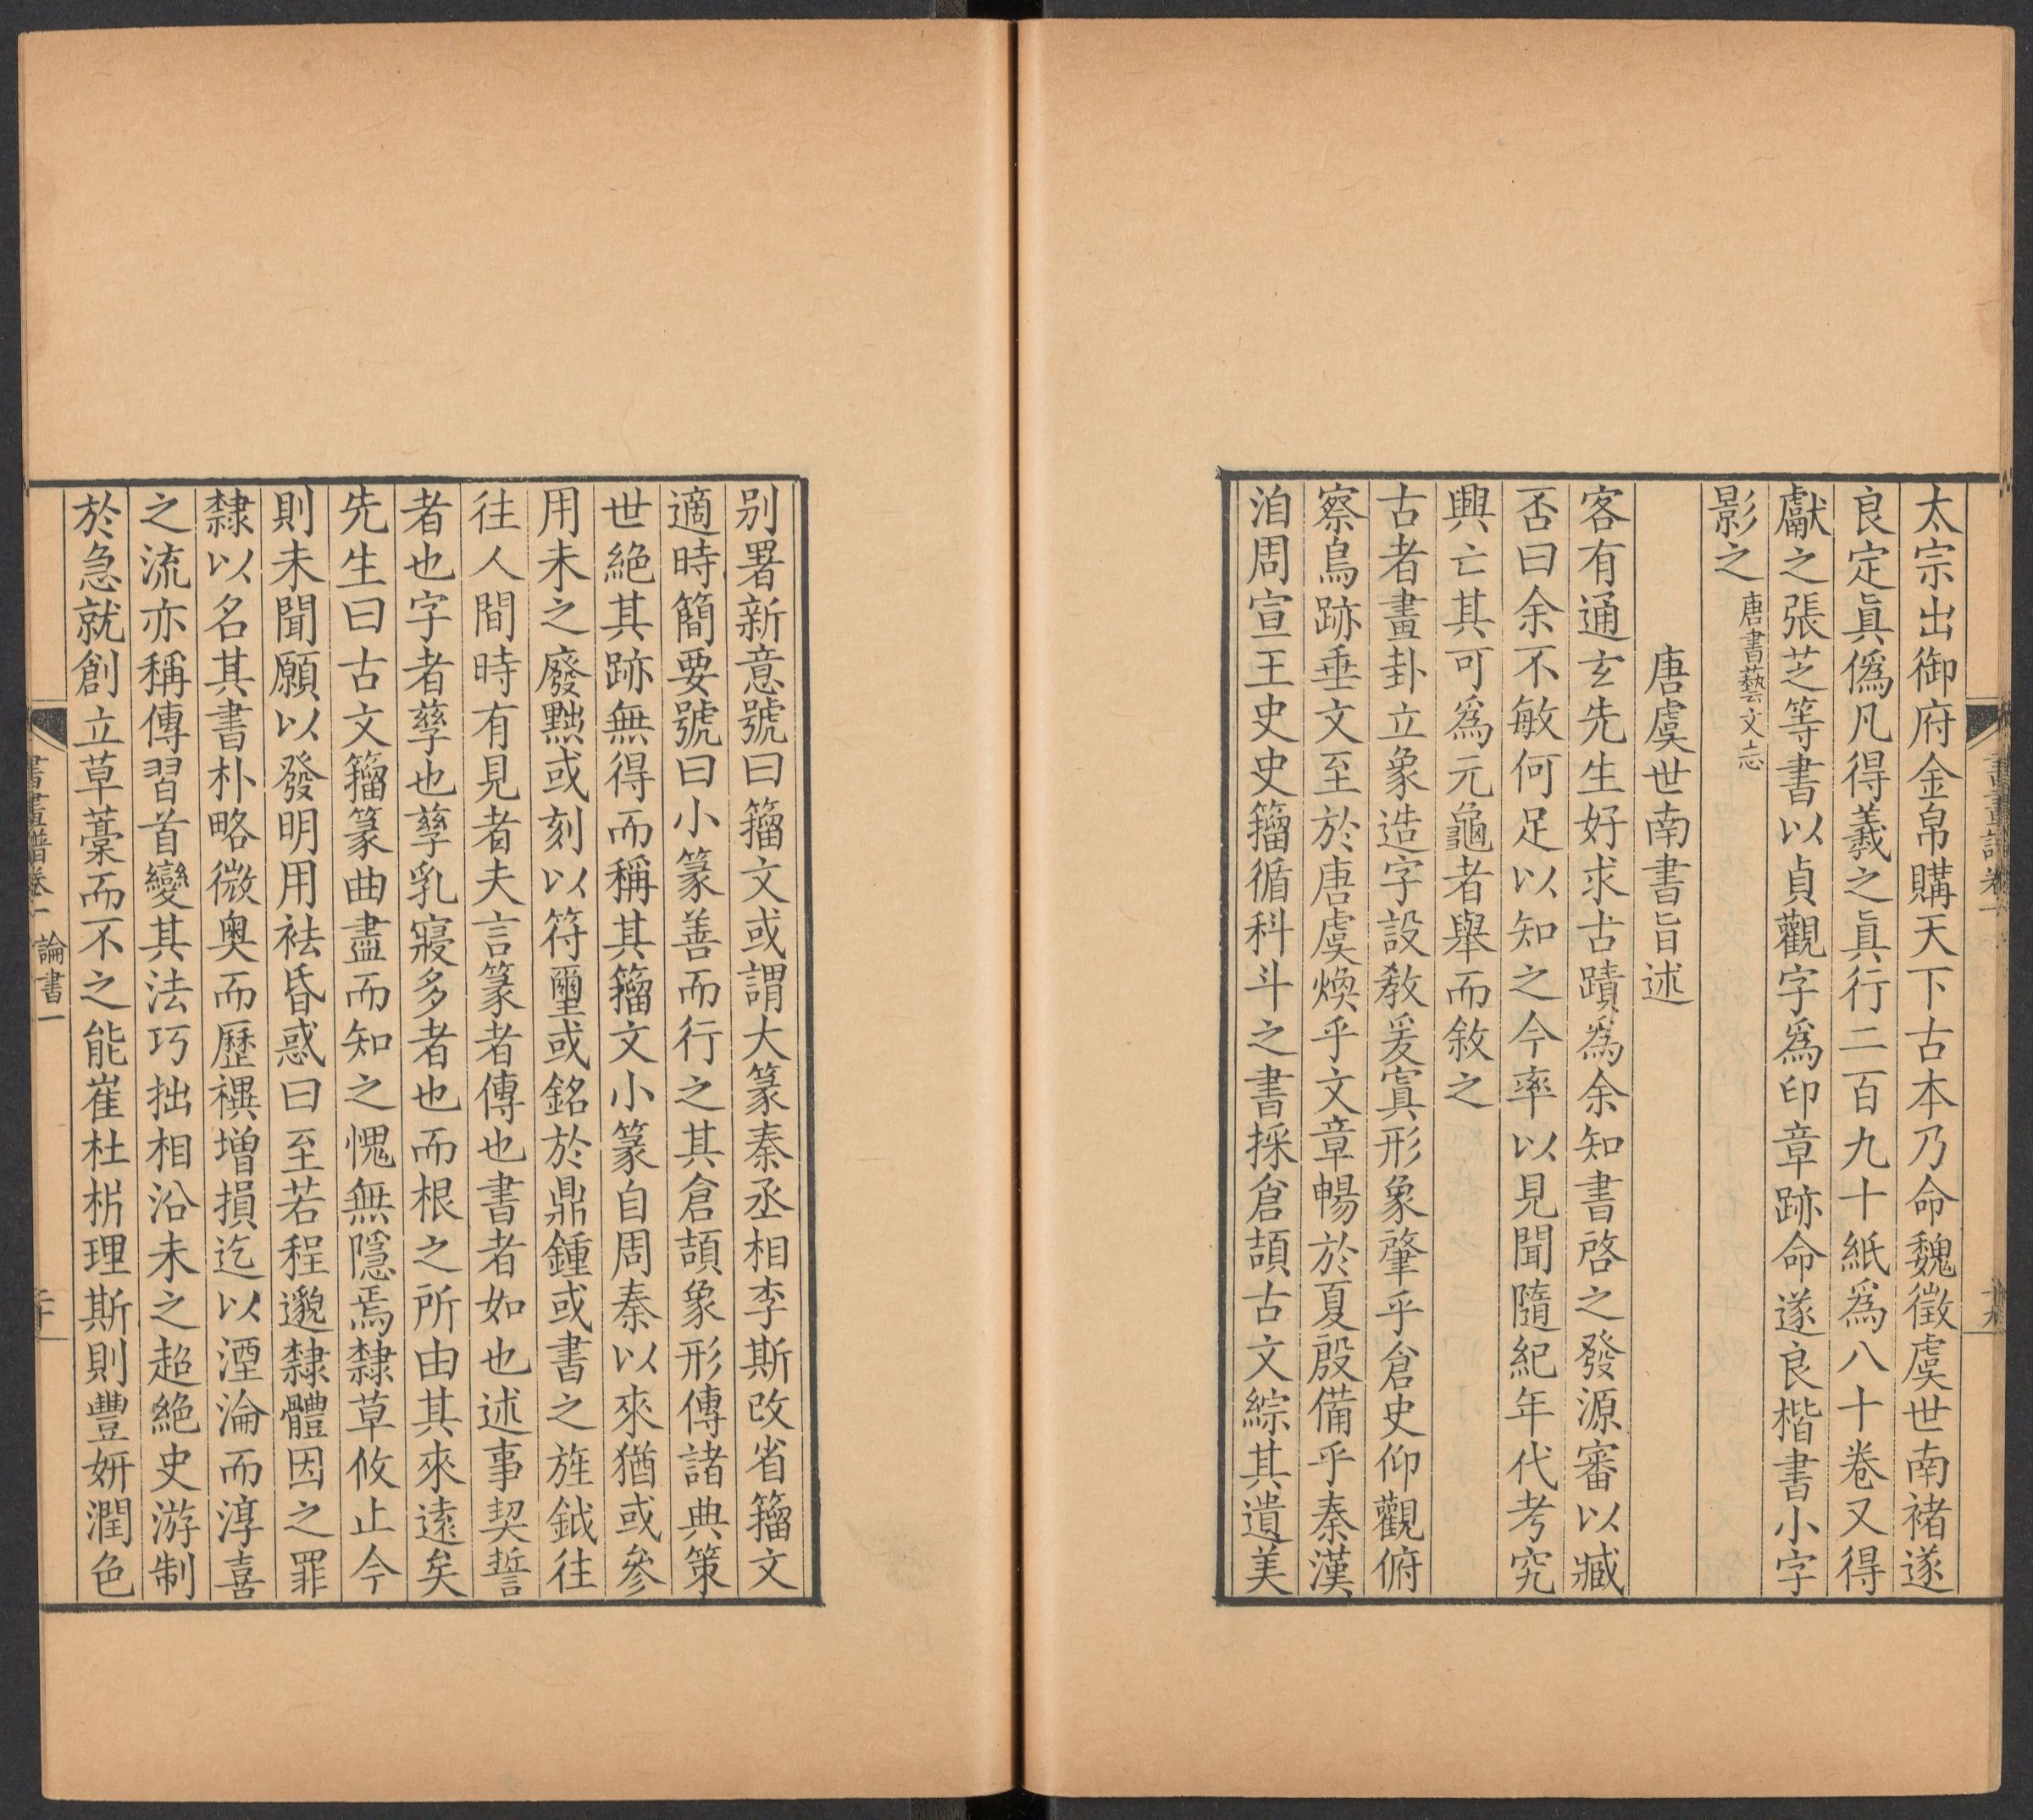 太宗出御府金帛購天下古本乃命魏徵虞世南褚遂
良定眞僞凡得羲之眞行二百九十紙爲八十卷又得
獻之張芝等書以貞觀字爲印章跡命遂良楷書小字
影之唐書藝文志
唐虞世南書旨述
客有通玄先生好求古蹟爲余知書啓之發源審以臧
否曰余不敏何足以知之今率以見聞隨紀年代考究
興亡其可爲元龜者舉而敘之
古者畫卦立象造字設教爰寘形象肇乎倉史仰觀俯
察鳥跡垂文至於唐虞煥乎文章暢於夏殷備乎秦漢
洎周宣王史史籀循科斗之書採倉頡古文綜其遺美
别署新意號曰籀文或謂大篆秦丞相李斯改省籀文
適時簡要號曰小篆善而行之其倉頡象形傳諸典策
世絶其跡無得而稱其籀文小篆自周秦以來猶或參
用未之廢黜或刻以符璽或銘於鼎鍾或書之旌鉞往
往人間時有見者夫言篆者傳也書者如也述事契誓
者也字者孳也孳乳寖多者也而根之所由其來遠矣
先生曰古文籀篆曲盡而知之愧無隱焉隸草攸止今
則未聞願以發明用袪昏惑曰至若程邈隸體因之罪
隸以名其書朴略微奥而歷禩增損迄以湮淪而淳喜
之流亦稱傳習首變其法巧拙相沿未之超絶史游制
於急就創立草藁而不之能崔杜析理斯則豐妍潤色
書畫譜卷一 論書一